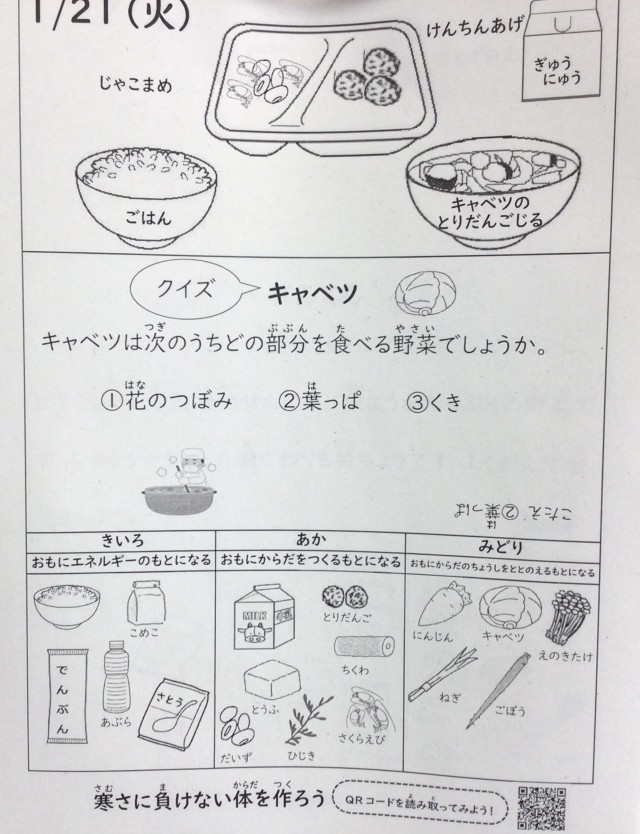 1/21(火)
けんちんあげ
ぎゅう
にゅう
じゃこまめ
ごはん
キャベツの
とりだんごじる
クイズ
キャベツ
キャベツは次のうちどの部分を食べる野菜でしょうか。
つぎ ぶぶん た やさい
①花のつぼみ ②葉っぱ ③くき
はな は
こたえ ②葉っぱ
は
きいろ
おもにエネルギーのもとになる
こめこ
でんぷん
あぶら
さとう
あか
おもにからだをつくるもとになる
MILK
とりだんご
ちくわ
とうふ
だいず
ひじき
さくらえび
みどり
おもにからだのちょうしをととのえるもとになる
にんじん
キャベツ
えのきたけ
ねぎ
ごぼう
寒さに負けない体を作ろう
さむ ま からだ つく
QRコードを読み取ってみよう!
よ と